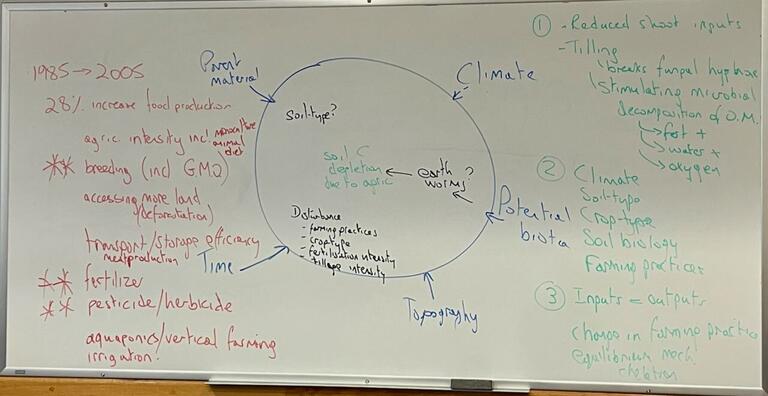 1985 → 2005
28% increase food production
agric. intensity incl. monoculture
animal
diet
** breeding (incl GMO)
accessing more land
(deforestation)
transport/storage efficiency
meat production
** fertilizer
** pesticide/herbicide
aquaponics/vertical farming
irrigation
Parent
material
Climate
Potential
biota
Topography
Time
Soil-type?
soil C
depletion
due to agric
← earth ?
worms
Disturbance
- farming practices
- crop type
- fertilisation intensity
- tillage intensity
① - Reduced shoot inputs
- Tilling
breaks fungal hyphae
Stimulating microbial
decomposition of O.M.
→ fert +
→ water +
→ oxygen
② Climate
Soil-type
Crop-type
Soil biology
Farming practices
③ Inputs = outputs
Change in farming practice
equilibrium mech.